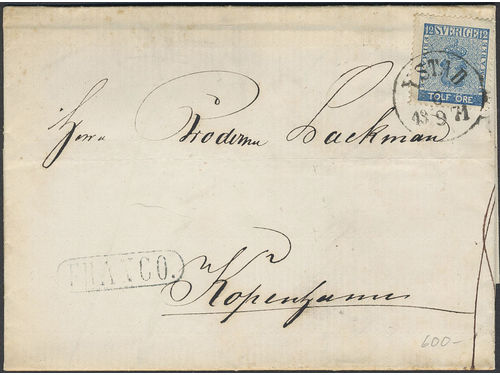 12 SVERIGE 12
TOLF ÖRE
YSTAD
13 9 71
Herrn Broderna Backman
FRANCO.
Kopenhamn
600-